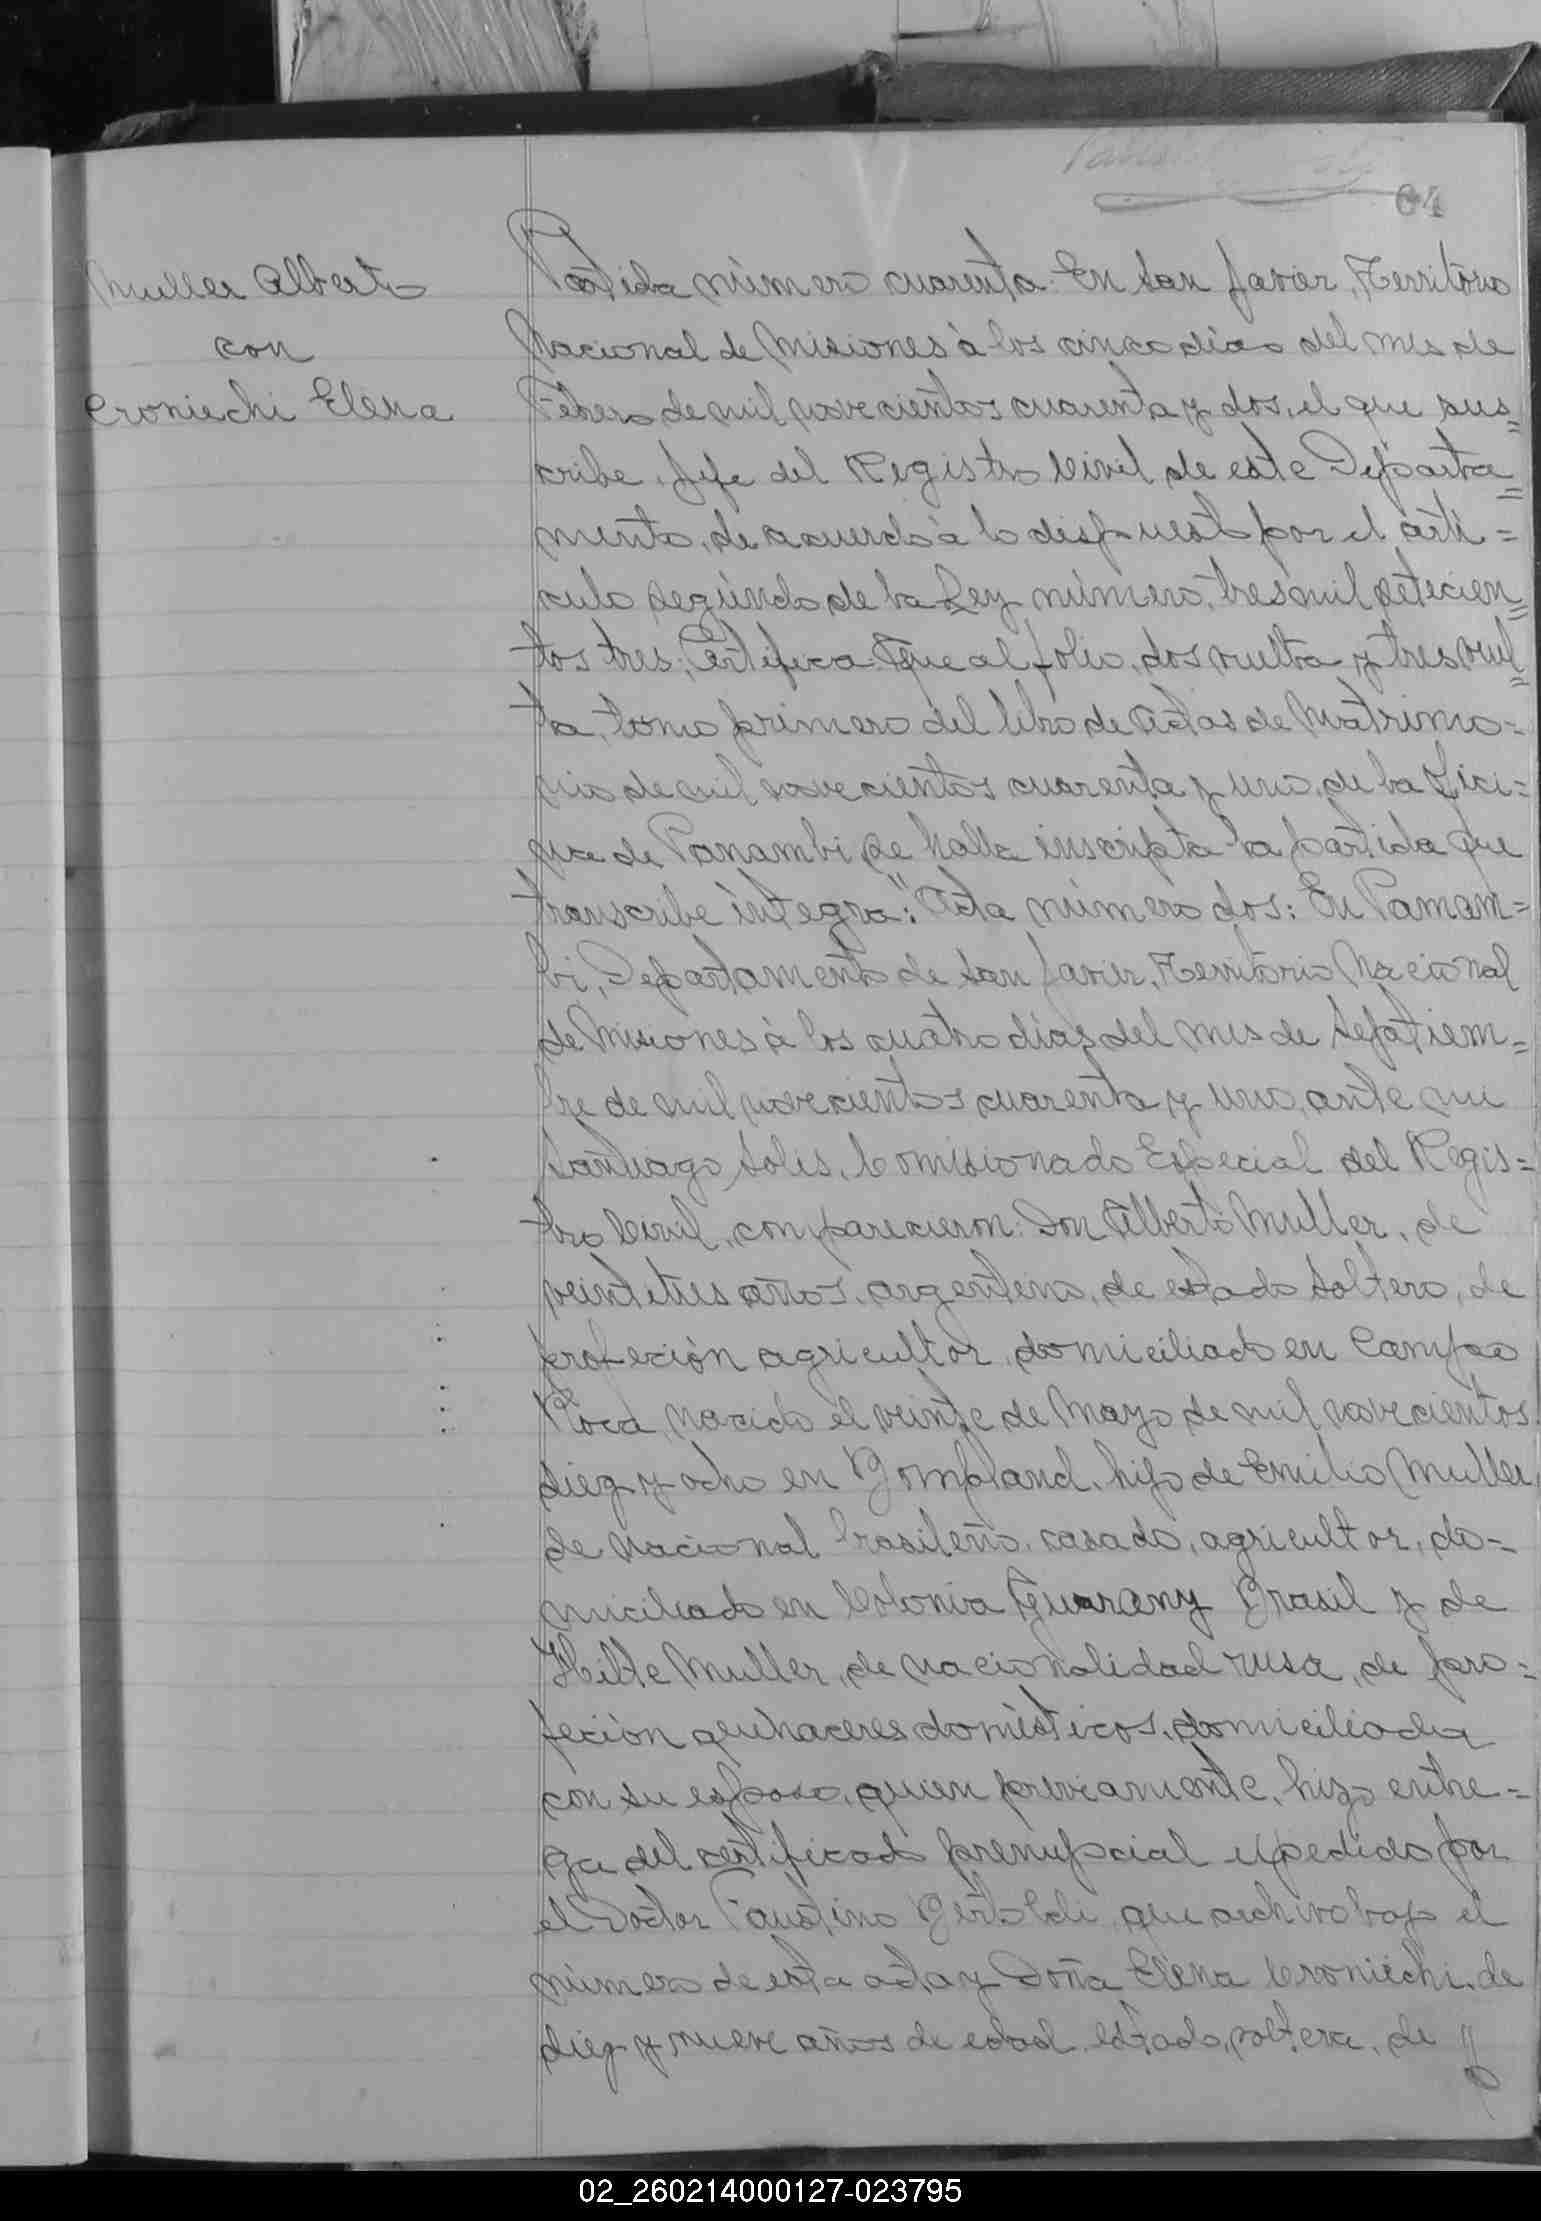 64
Muller Alberto
con
Croniechi Elena
Partida número cuarenta: En San Javier, Territorio
Nacional de Misiones á los cinco dias del mes de
Febrero de mil novecientos cuarenta y dos, el que sus=
cribe, Jefe del Registro Civil de este Departa=
mento, de acuerdo á lo dispuesto por el arti=
culo segundo de la Ley número, tres mil setecien=
tos tres; Certifica: Que al folio, dos vuelta y tres vuel=
ta, tomo primero del libro de Actas de Matrimo=
nio de mil novecientos cuarenta y uno, de la
de Panambi, se halla inscripta la partida que
transcribe integra: "Acta número dos: En Panam=
bi, Departamento de San Javier, Territorio Nacional
de Misiones á los cuatro dias del mes de Septiem=
bre de mil novecientos cuarenta y uno, ante mi
Santiago Solis, Comisionado Especial del Regis=
tro Civil, comparecieron: Don Alberto Muller, de
veintitres años, argentino, de estado soltero, de
profeción agricultor, domiciliado en Campo
Roca, nacido el veinte de Mayo de mil novecientos
diez y ocho en Bompland, hijo de Emilio Muller
de nacional brasileño, casado, agricultor, do=
miciliado en Colonia Guarany Brasil y de
Muller, de nacionalidad rusa, de pro=
feción quehaceres domésticos, domiciliada
con su esposo, quien previamente, hizo entre=
ga del certificado prenupcial expedido por
el Doctor Faustino que archivo bajo el
número de esta acta y Doña Elena Croniechi, de
diez y nueve años de edad, estado, soltera, de
02_260214000127-023795